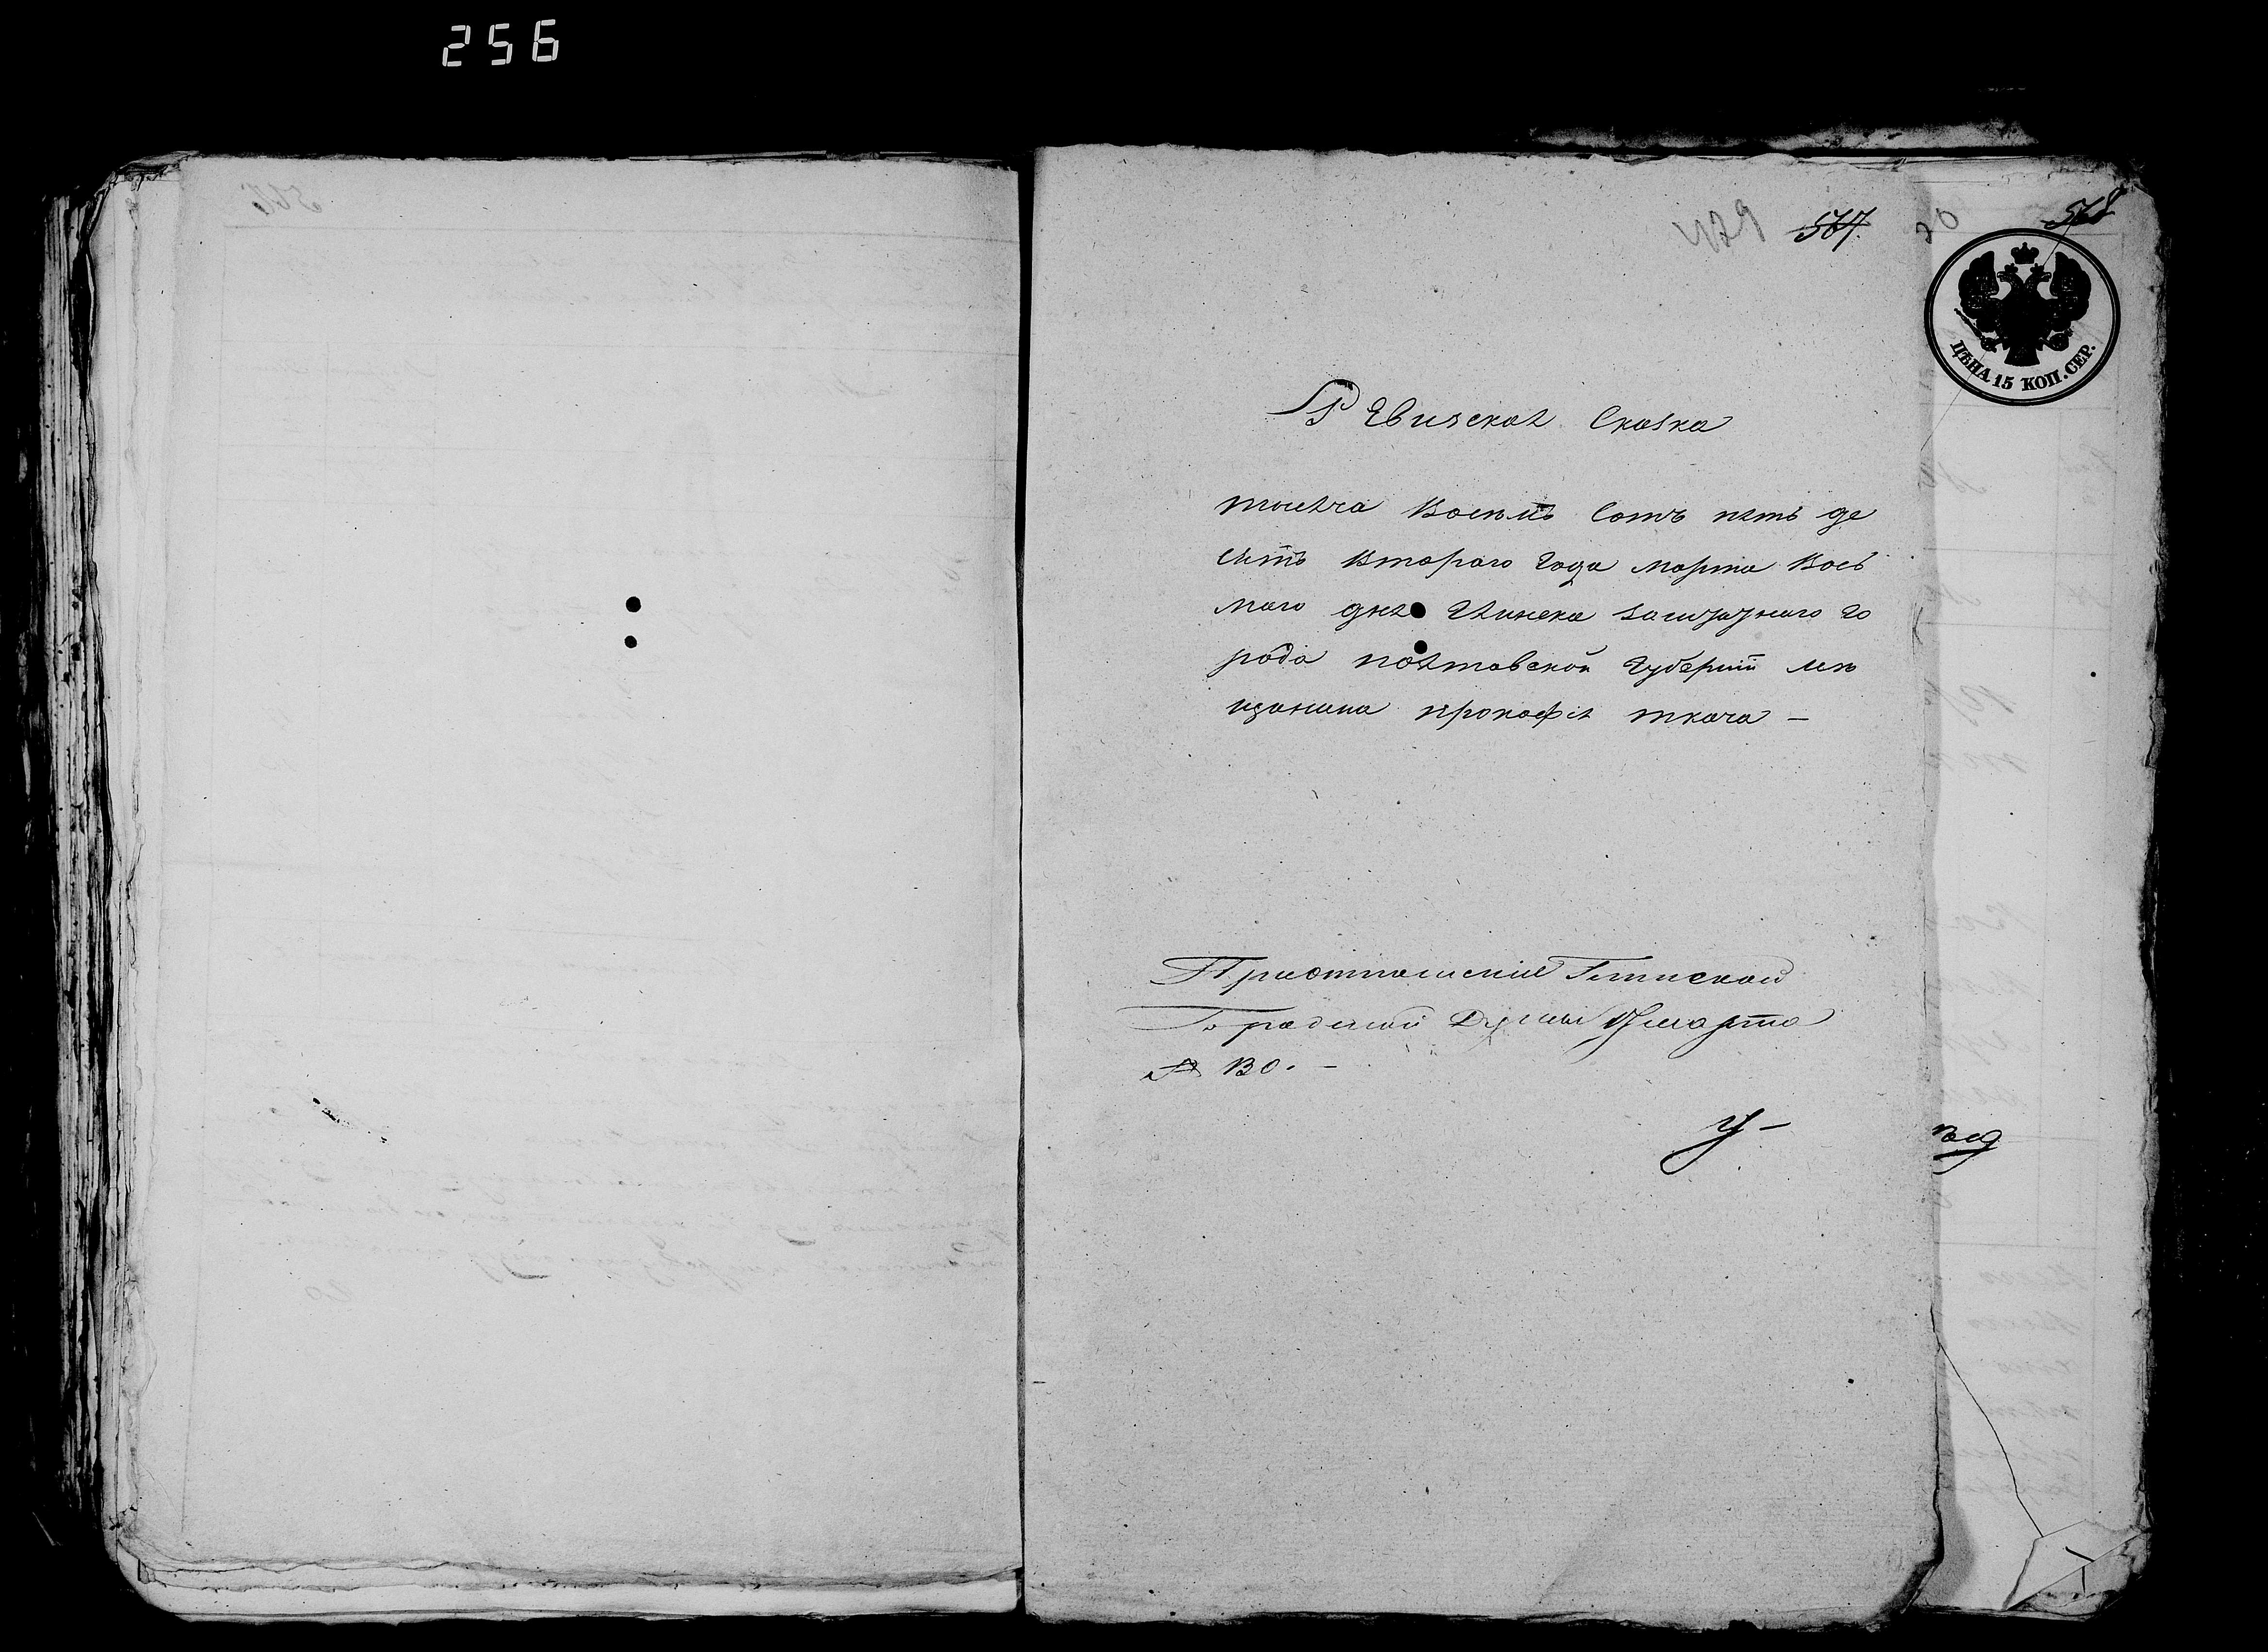 256
429 567
568
ЦѢНА 15 КОП. СЕР.
РЕвизская Сказка
тысяча Восемъ Сотъ пять де
сять Втораго года марта Вось
маго дня Глинска заштатнаго го
рода полтавской губерніи мѣ
щанина прокофія ткача —
При отношеніи Глинской
Градской Думы 17 марта
№ 130. —